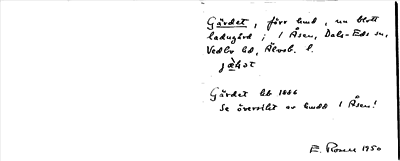 Gärdet, förr hmd, nu blott
ladugård; 1 Åsen, Dals-Eds sn,
Vedbo hd, Älvsb. l.
Gärdet hb 1886
Se översikt av hmdd 1 Åsen!
E. Rosen 1950